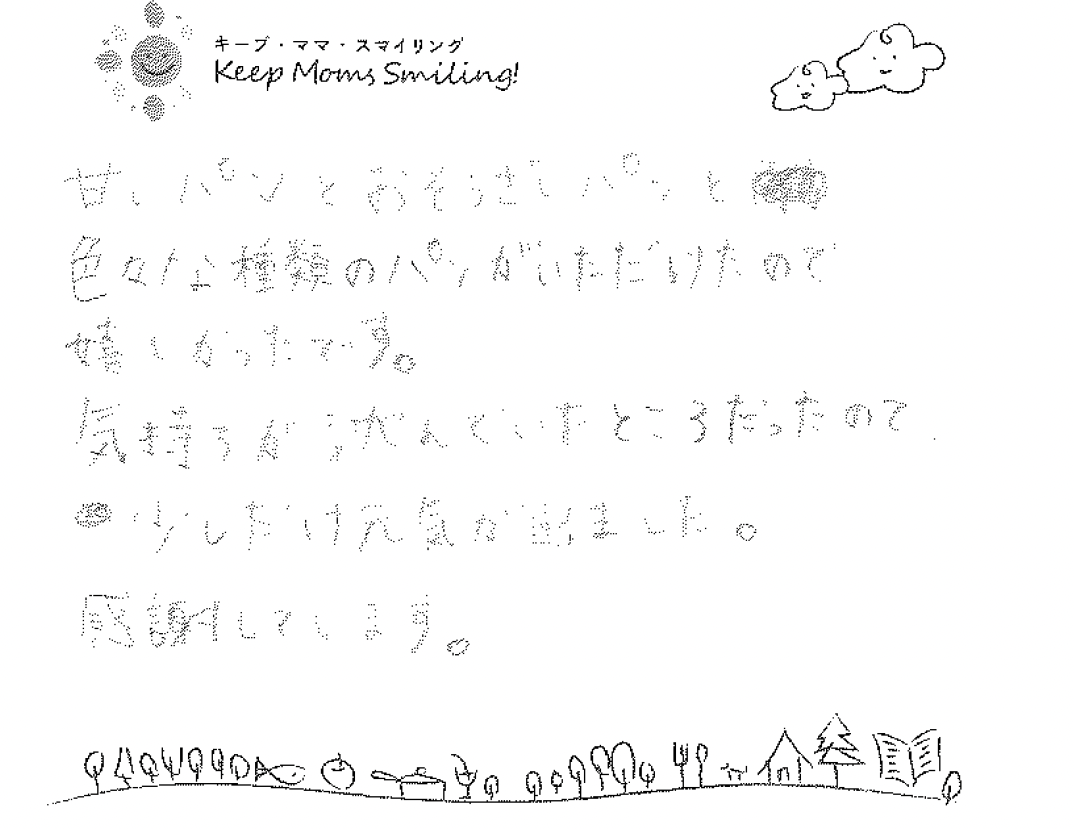 キープ・ママ・スマイリング
Keep Moms Smiling!
甘いパンとおそうざいパンと
色々な種類のパンがいただけたので
嬉しかったです。
気持ちが沈んでいたところだったので、
少しだけ元気が出ました。
感謝しています。